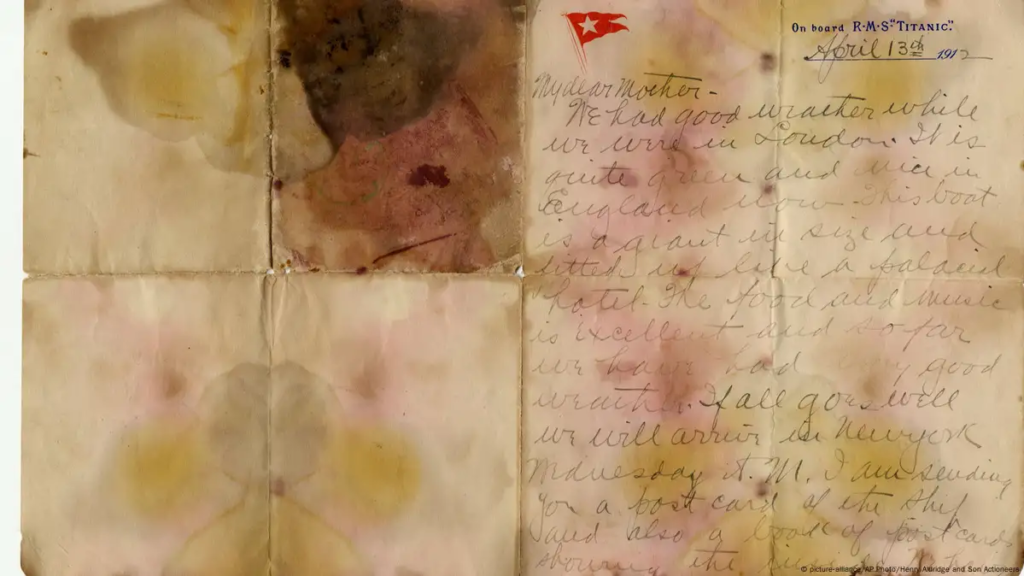 On board R·M·S "TITANIC."
April 13th 1912
My dear Mother-
We had good weather while
we were in London. It is
quite green and nice in
England now. This boat
is a giant in size and
fitted up like a palacial
hotel. The food and music
is excellent and so far
we have had very good
weather. If all goes well
we will arrive in New york
Wednesday A.M. I am sending
you a post card of the ship
and also a book of postcards
showing the
© picture-alliance/AP Photo/Henry Aldridge and Son Actioneers